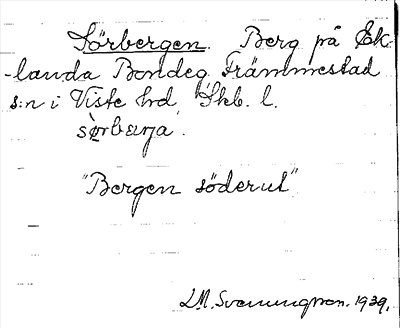 Sörbergen. Berg på Ek-
-landa Bondeg, Främmestad
s:n i Viste hd, Skb. l.
"Bergen söderut"
L.M. Svenungsson. 1939.